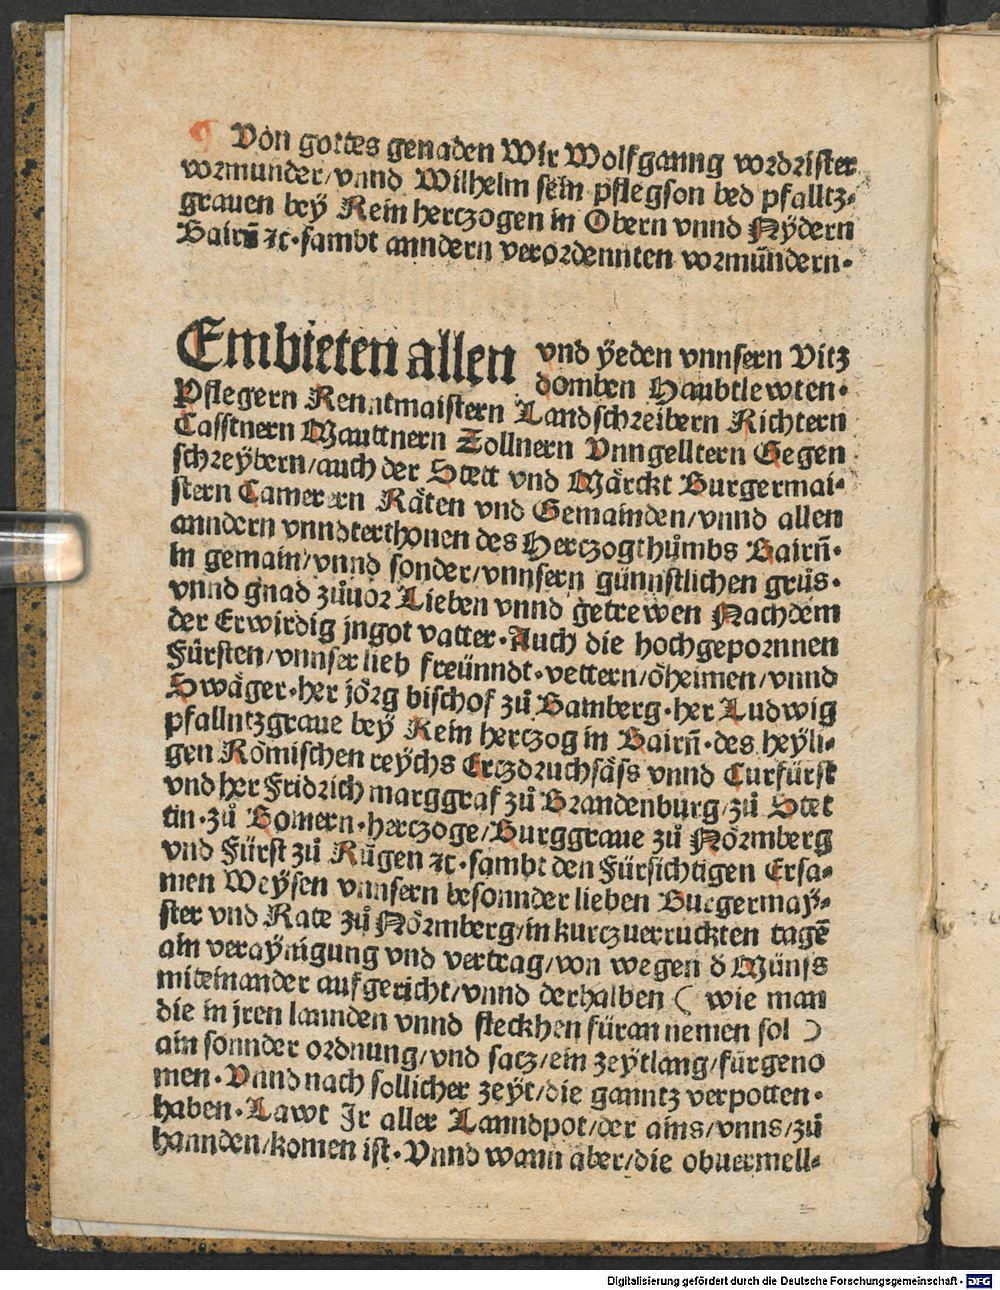 ¶ Von gottes genaden Wir Wolfganng vordrister
vormunder/vnnd Wilhelm sein pflegson bed pfalltz⸗
grauen bey Rein hertzogen in Obern vnnd Nÿdern
Bairn̄ ⁊c·sambt anndern verordennten vormündern·
Embieten allen vnd ÿeden vnnsern Vitz
domben Haubtlewten·
Pflegern Renntmaistern Landschreibern Richtern
Casstnern Mauttnern Zollnern Vnngelltern Gegen
schreybern/auch der Stett vnd Märckt Burgermai⸗
stern Camerern Räten vnd Gemainden/vnnd allen
anndern vnndterthonen des Hertzogthůmbs Bairn̄·
in gemain/vnnd sonder/vnnsern günnstlichen grůs·
vnnd gnad zůuor Lieben vnnd getrewen Nachdem
der Erwirdig jngot vatter·Auch die hochgepornnen
Fürsten/vnnser lieb freünndt·vettern/öheimen/vnnd
Swäger·her jörg bischof zů Bamberg·her Ludwig
pfallntzgraue bey Rein hertzog in Bairn̄·des heyli⸗
gen Römischen reychs Ertzdruchsäss vnnd Curfürst
vnd her Fridrich marggraf zů Brandenburg/zů Stet
tin·zů Bomern·hertzoge/Burggraue zů Nörmberg
vnd Fürst zů Rügen ⁊c·sambt den Fürsichtigen Ersa⸗
men Weysen vnnsern besonnder lieben Burgermaÿ⸗
ster vnd Rate zů Nörmberg/in kurtzuerruckten tagē
ain veraynigung vnd vertrag/von wegen d Münss
miteinander aufgericht/vnnd derhalben ( wie man
die in jren lannden vnnd fleckhen füran nemen sol )
ain sonnder ordnung/vnd satz/ein zeytlang/fürgeno
men·Vnnd nach sollicher zeyt/die ganntz verpotten·
haben·Lawt Jr aller Lanndpot/der ains/vnns/zů
hannden/komen ist·Vnnd wann aber/die obuermell⸗
Digitalisierung gefördert durch die Deutsche Forschungsgemeinschaft · DFG